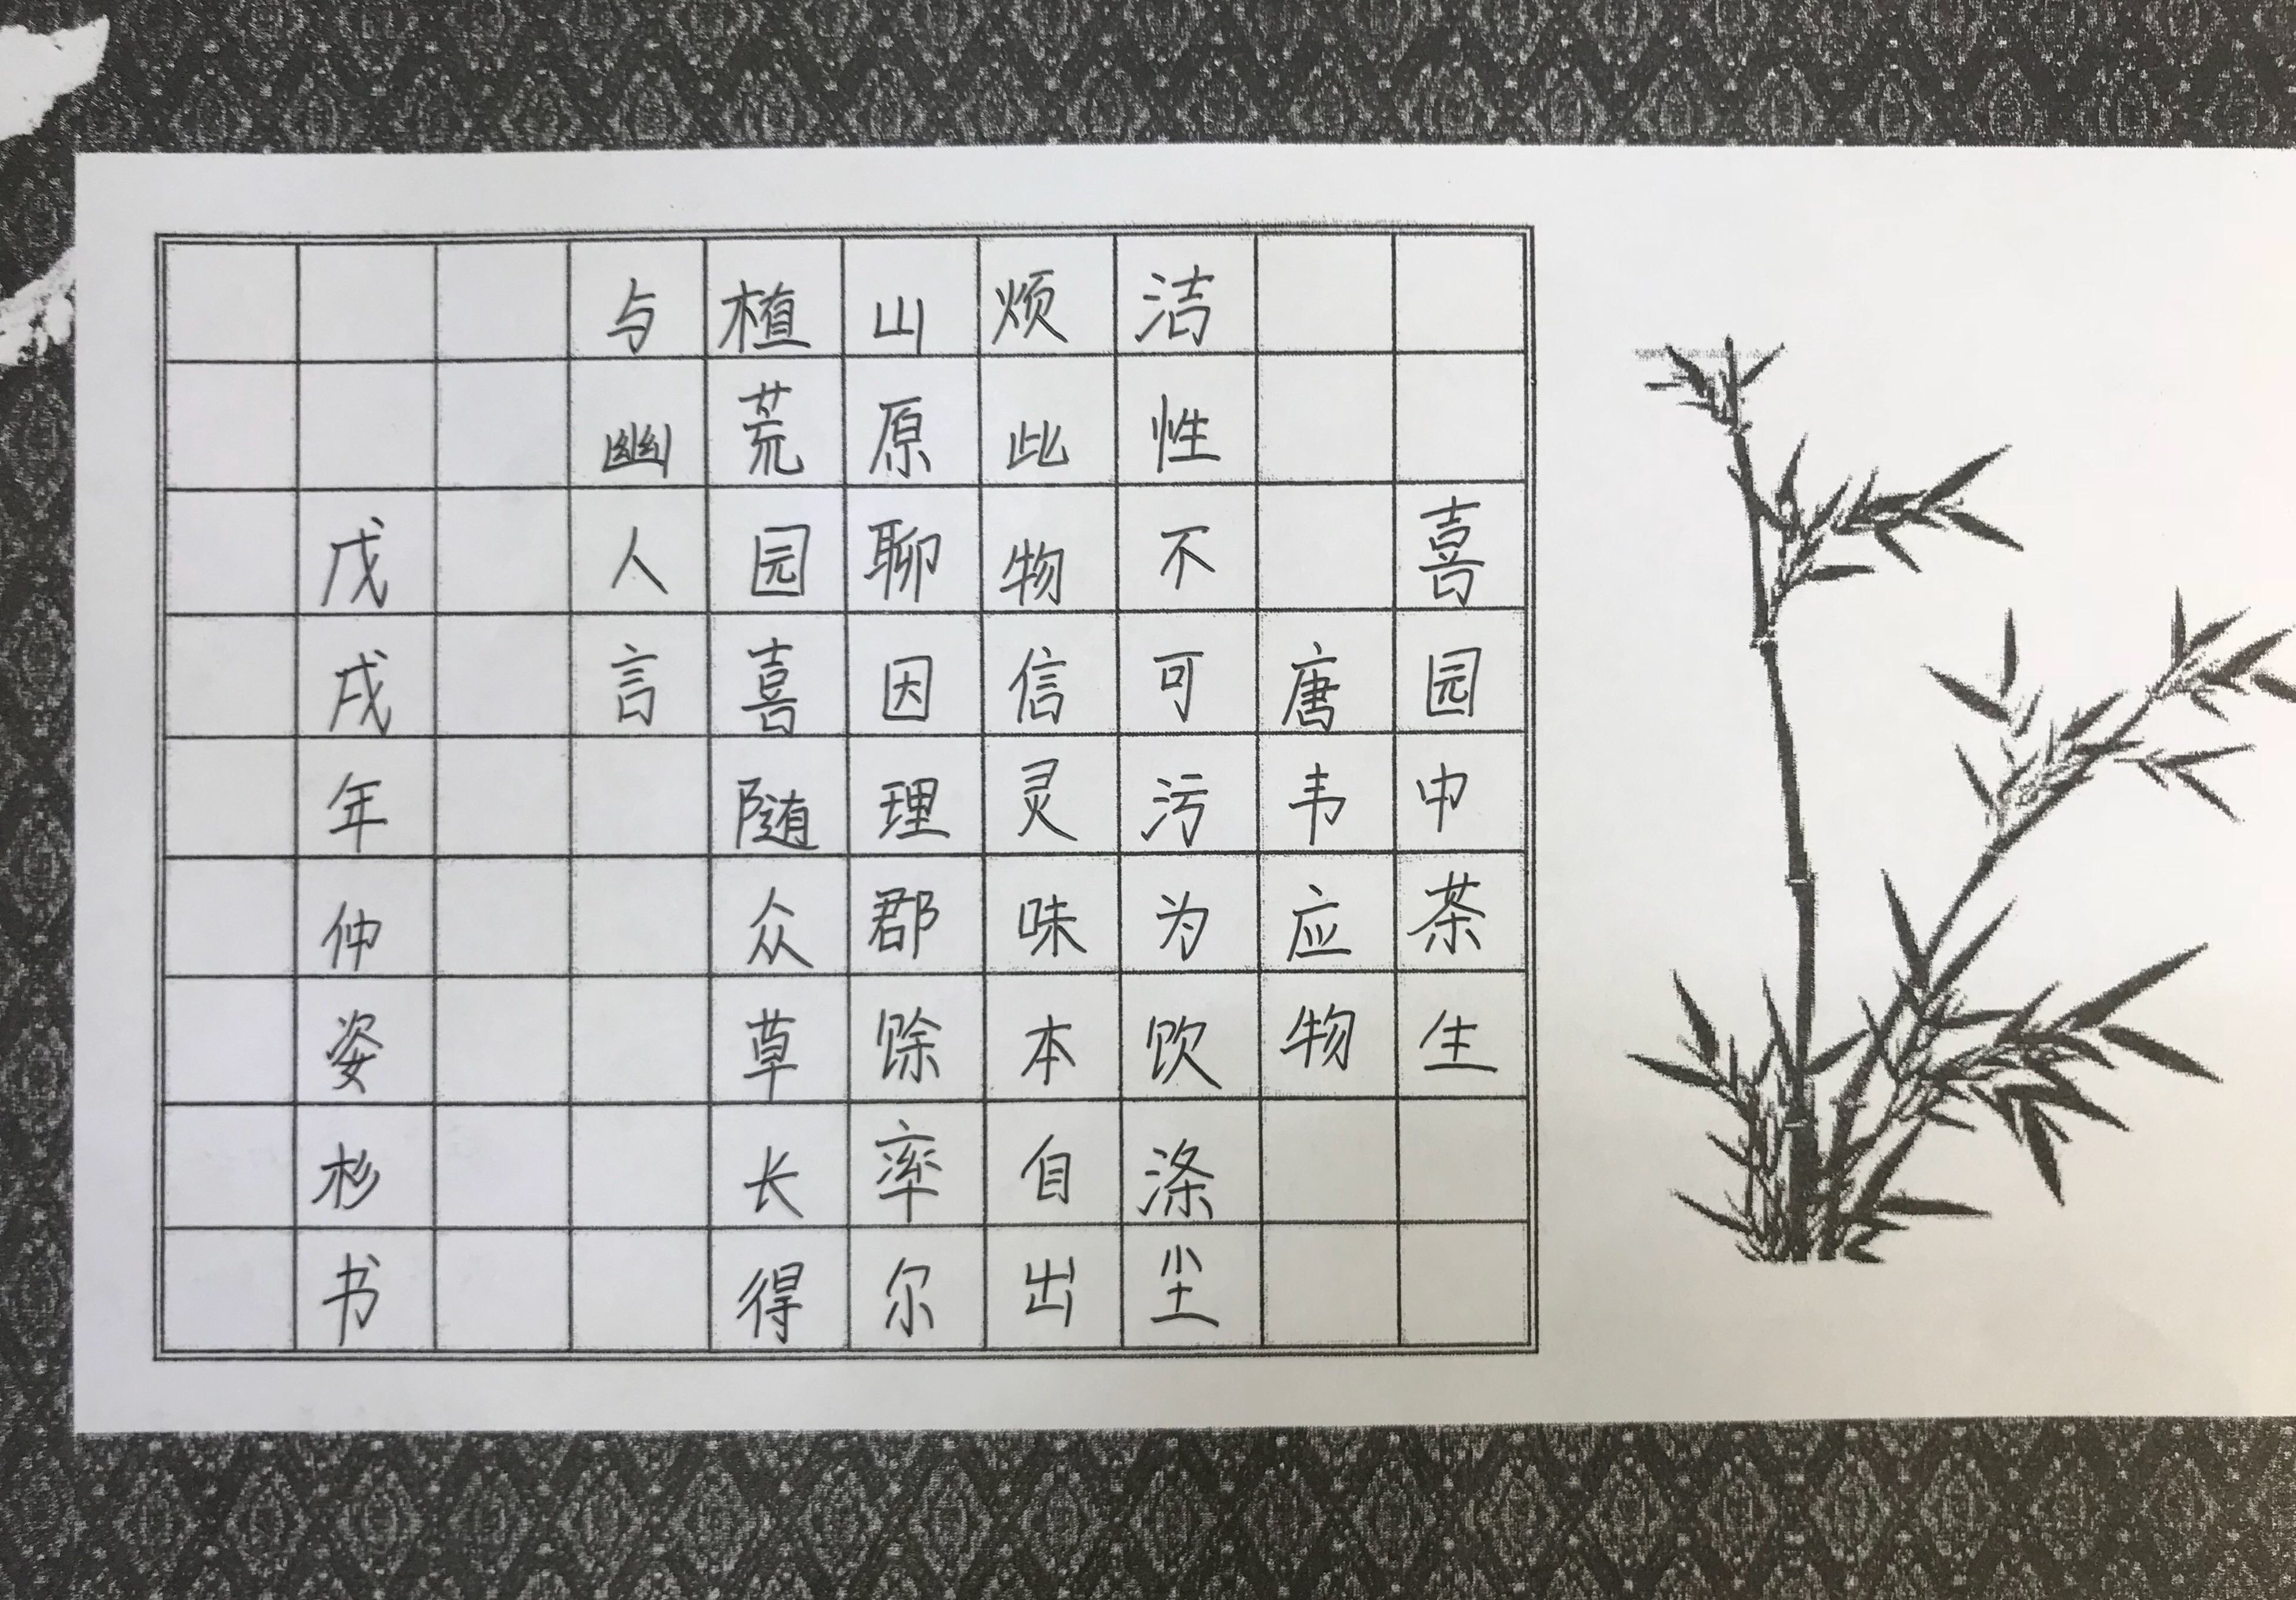 喜园中茶生
唐韦应物
洁性不可污为饮涤尘
烦此物信灵味本自出
山原聊因理郡馀率尔
植荒园喜随众草长得
与幽人言
戊戌年仲姿杉书